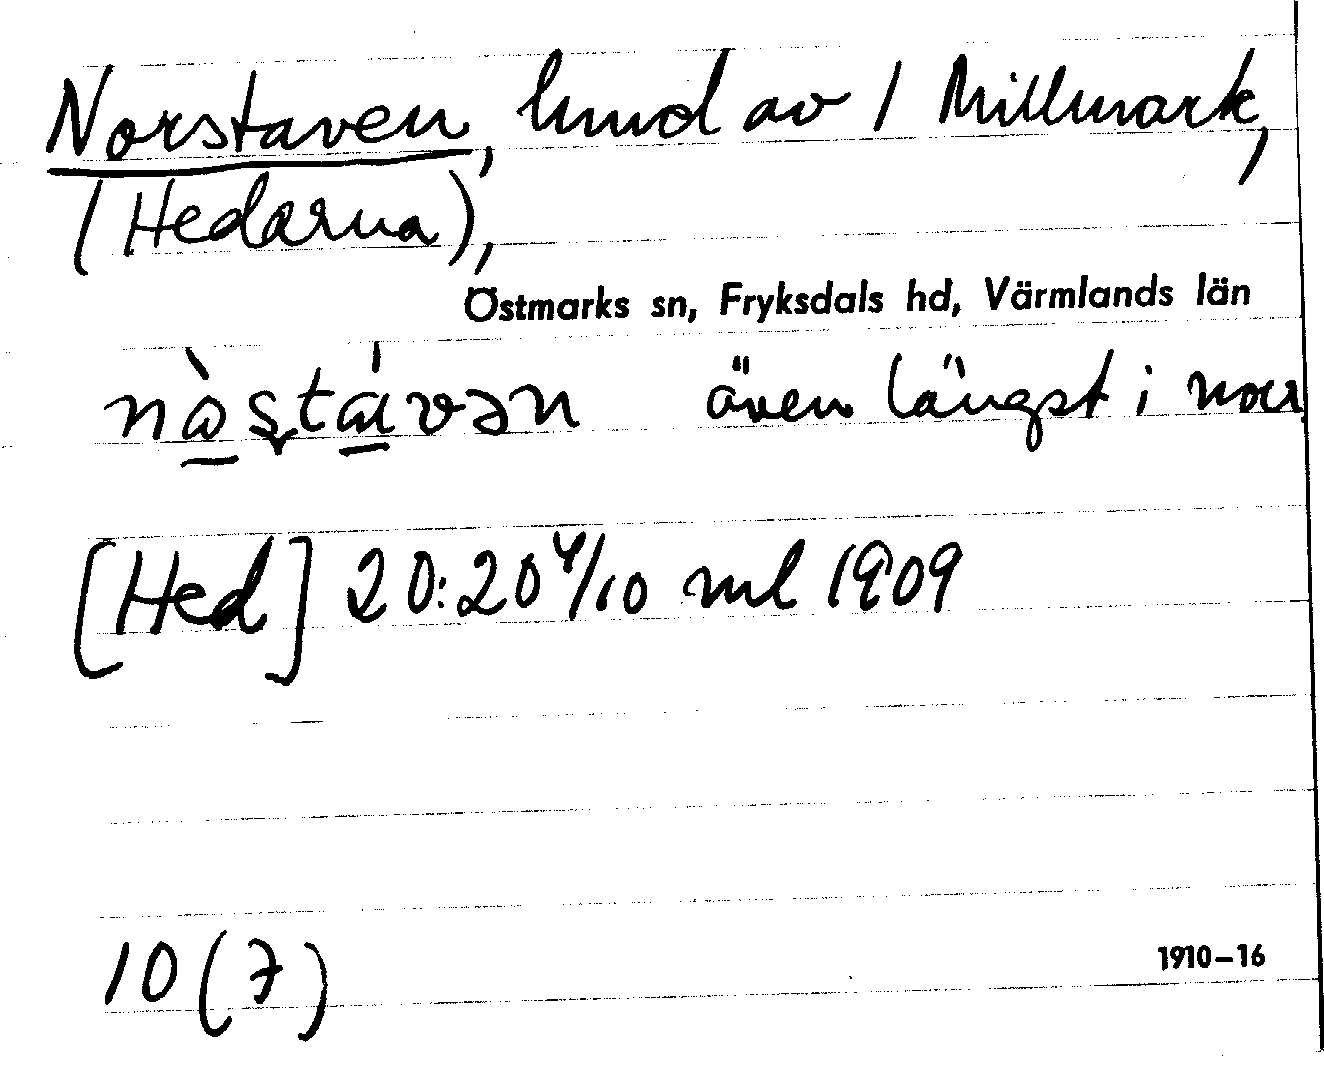 Norstaven, hmd av 1 Millmark,
(Hedarna),
Östmarks sn, Fryksdals hd, Värmlands län
även längst i norr
[Hed] 20:20 4/10 ml 1909
10 (7)
1910–16